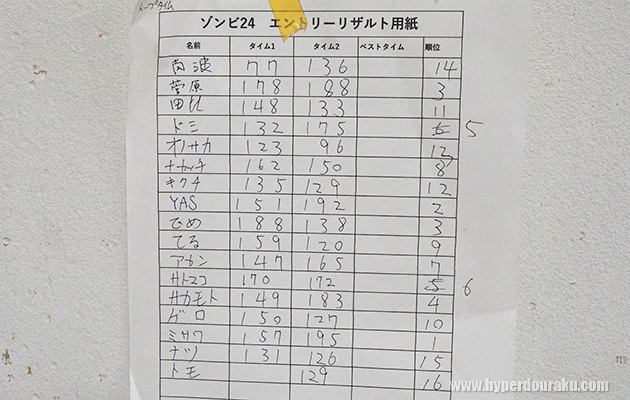 ループタイム
ゾンビ24 エントリーリザルト用紙
名前 タイム1 タイム2 ベストタイム 順位
内波 77 136 14
菅原 178 188 3
田比 148 133 11
ドミ 132 175 5
オノサカ 123 96 12
ナカッチ 162 150 8
キクチ 135 129 12
YAS 151 192 2
ひめ 188 138 3
てる 159 120 9
アカン 147 165 7
サトマコ 170 172 6
サカモト 149 183 4
ゲロ 150 127 10
ミサワ 157 195 1
ナツ 131 126 15
トモ 129 16
www.hyperdouraku.com